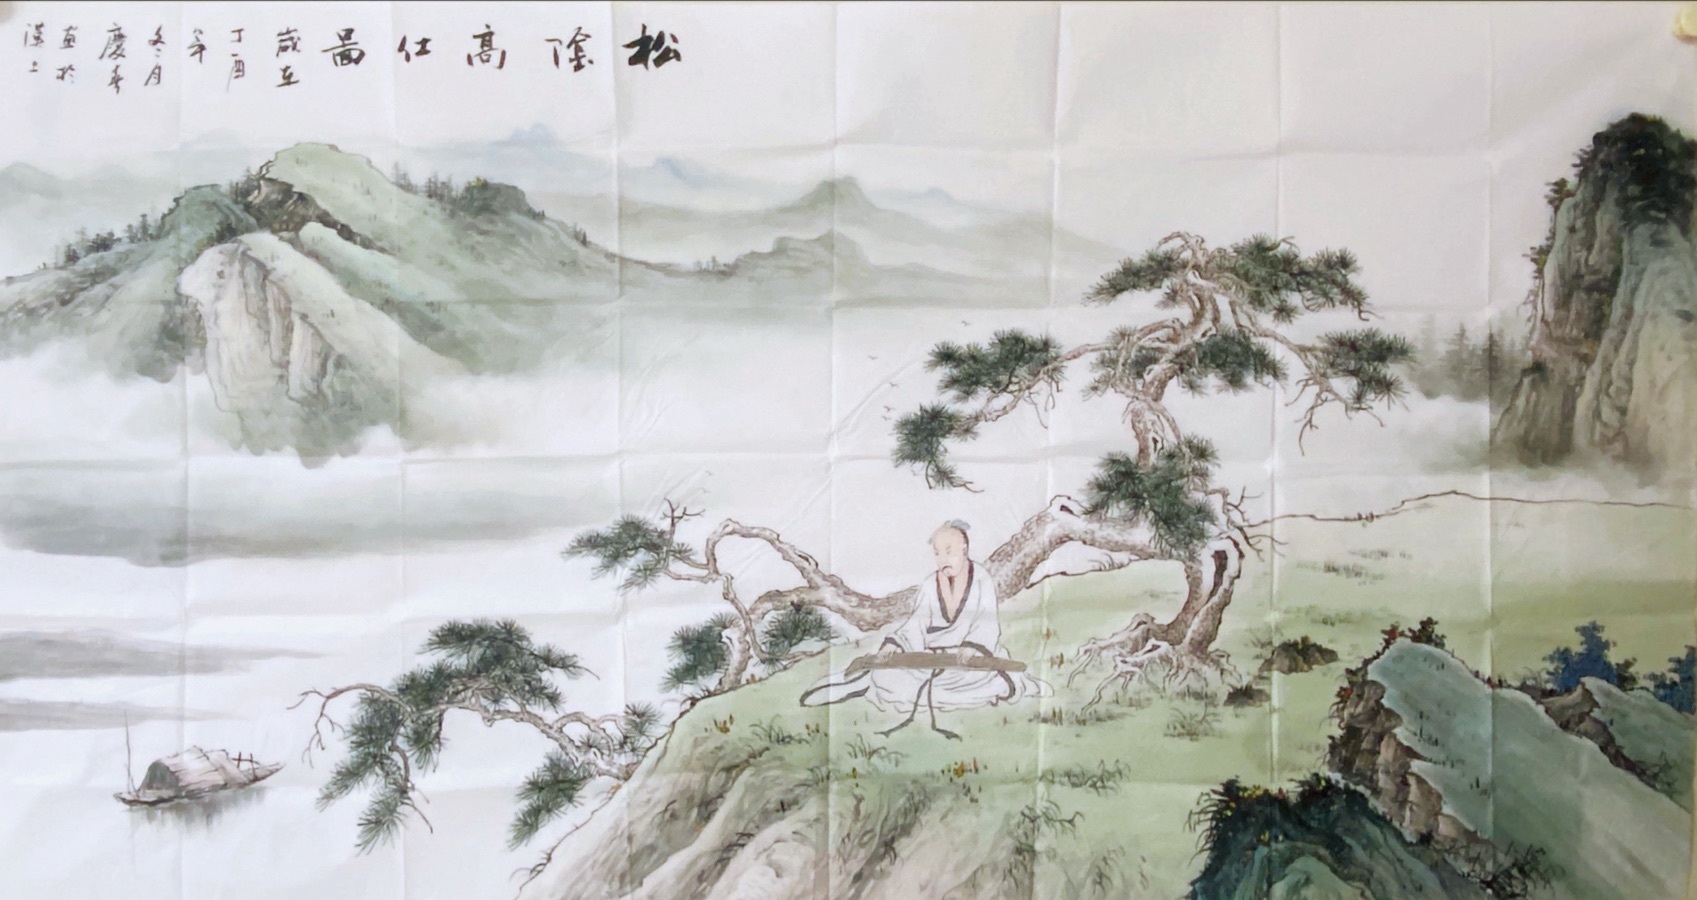 松陰高仕圖
歲在
丁酉
年
冬月
慶春
画於
漢上